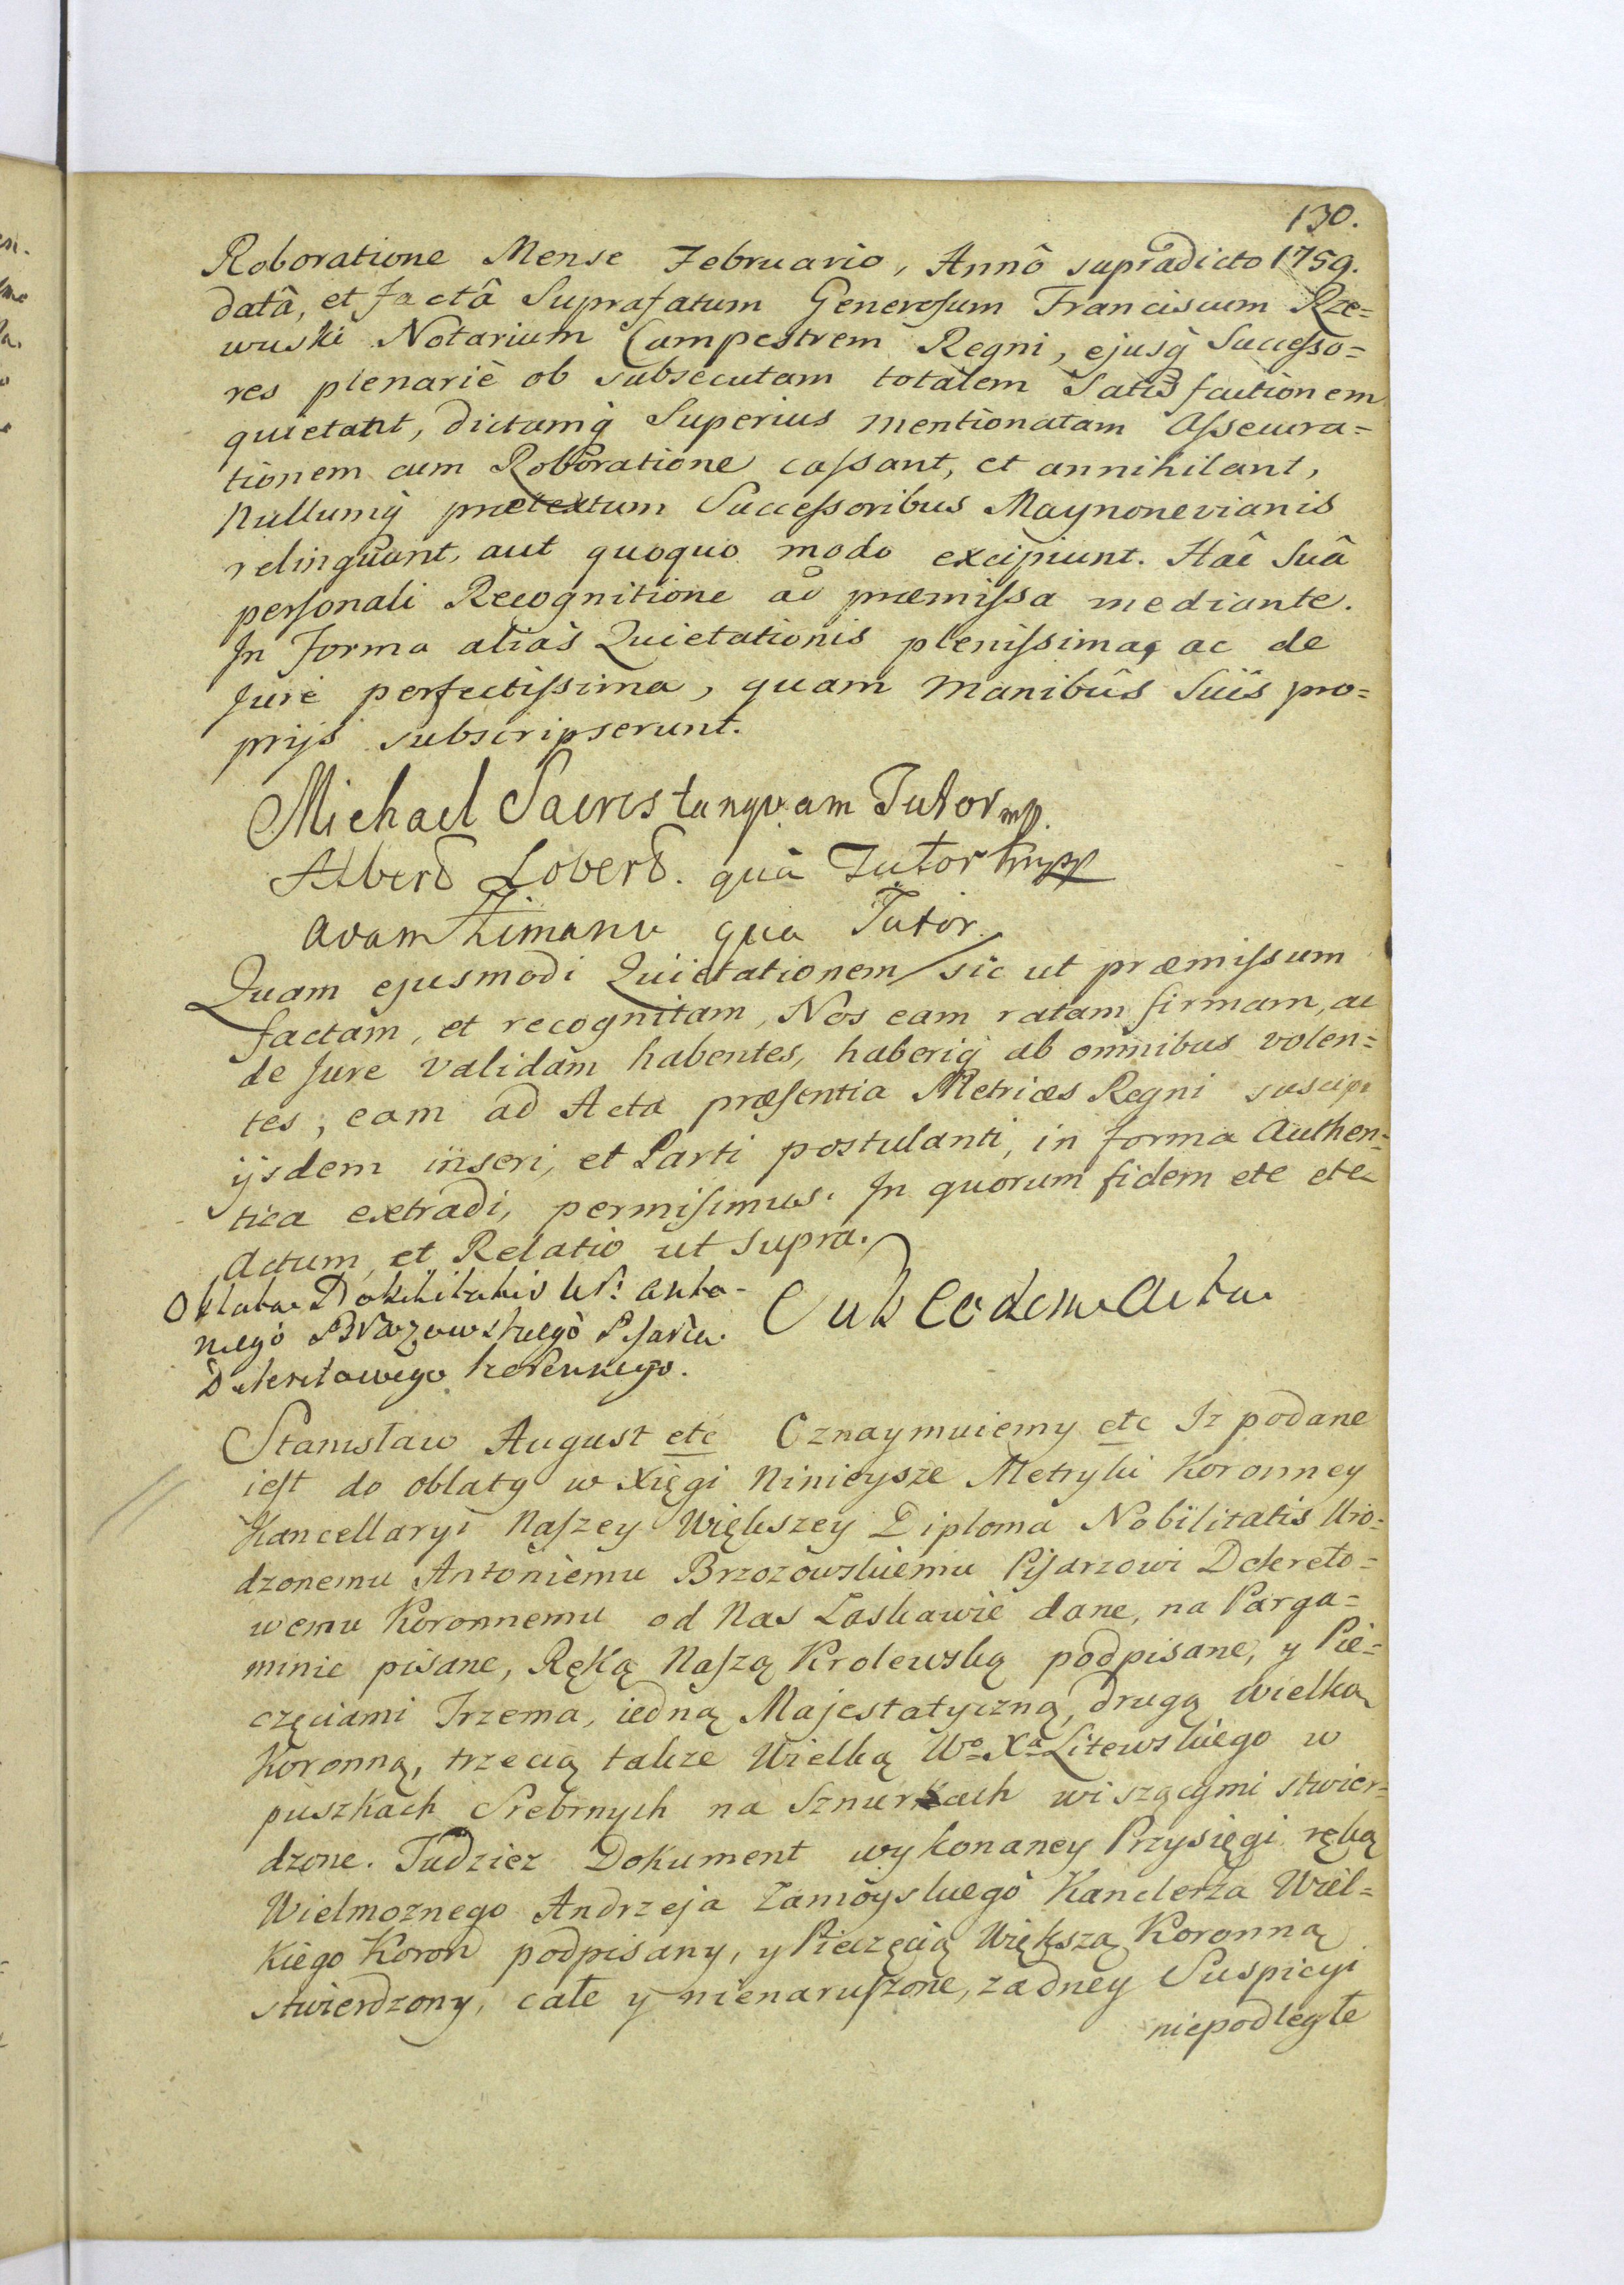 130.
Roboratione Mense Februario, Annô supradicto 1759.
datâ, et factâ Suprafatum Generosum Franciscum Rze=
wuski Notarium Campestrem Regni, ejusq̀ Successo=
res plenariè ob subsecutam totalem Satisfactionem
quietant, dictamq̀ Superius mentionatam Assecura=
tionem cum Roboratione cassant, et annihilant,
Nullumq̀ prætextum Successoribus Maynonevianis
relinquant, aut quoquo modo excipiunt. Hac Suâ
personali Recognitione ad præmissa mediante.
In Forma alias Quietationis plenissima, ac de
Jure perfectissima, quam Manibus Suis pro=
prijs subscripserunt.
Michael Sacres tanquam Tutor mp.
Albert Lobert. quà Tutor mpp
Adam qua Tutor.
Quam ejusmodi Quietationem sic ut præmissum
factam, et recognitam, Nos eam ratam firmam, ac
de Jure validam habentes, haberiq̀ ab omnibus volen=
tes, eam ad Acta præsentia Metrices Regni suscipi
ijsdem inseri, et Parti postulanti, in forma Authen=
tica extradi, permisimus. In quorum fidem etc etc
Actum, et Relatio ut supra.
Oblata Nobilitatis Ur: Anto-
niego Brzozowskiego Pisarza
Dekretowego Koronnego.
Sub eodem Actu
Stanisław August etc Oznaymuiemy etc Iz podane
iest do oblaty w Xięgi Ninieysze Metryki Koronney
Kancellaryi Naszey Większey Diploma Nobilitatis Uro=
dzonemu Antoniemu Brzozowskiemu Pisarzowi Dekreto=
wemu Koronnemu od Nas Łaskawie dane, na Parga=
minie pisane, Ręką Naszą Krolewską podpisane, y Pie=
częciami Trzema, iedną Majestatyczną, drugą wielką
Koronną, trzecią także Wielką Wo Xa Litewskiego w
puszkach Srebrnych na Sznurkach wiszącymi stwier=
dzone. Tudziez Dokument wykonaney Przysięgi ręką
Wielmoznego Andrzeja Zamoyskiego Kanclerza Wiel=
kiego Koron podpisany, y Pieczęcią Większą Koronną
stwierdzony, całe y nienaruszone, zadney Suspicyi
niepodległe